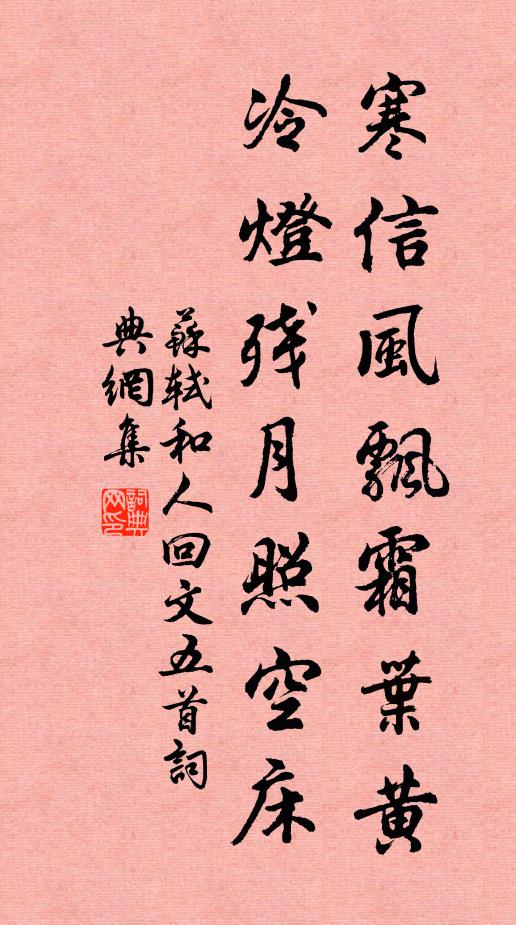 寒信風飄霜葉黄
冷燈残月照空床
蘇軾和人回文五首詞
典網集
詞典网印